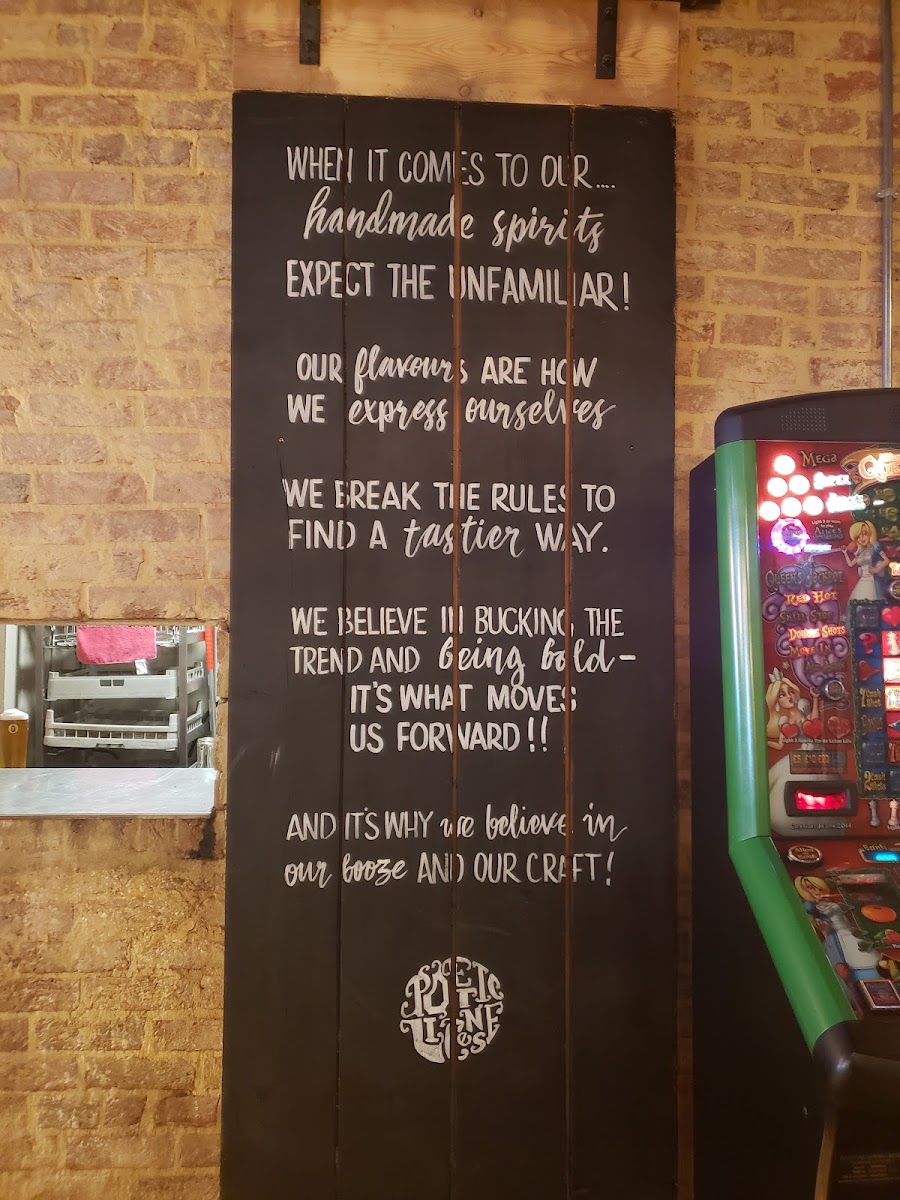 WHEN IT COMES TO OUR....
handmade spirits
EXPECT THE UNFAMILIAR!
OUR flavours ARE HOW
WE express ourselves
WE BREAK THE RULES TO
FIND A tastier WAY.
WE BELIEVE IN BUCKING THE
TREND AND being bold-
IT'S WHAT MOVES
US FORWARD!!
AND IT'S WHY we believe in
our booze AND OUR CRAFT!
POETIC
LICENSE
MEGA
QUEEN'S JACKPOT
RED HOT
DOUBLE SHOTS
MOVE IN